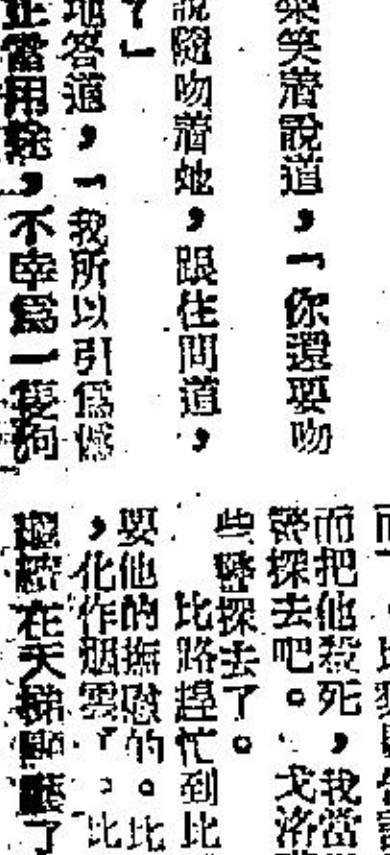 笑着說道，「你還要吻
說隨吻着她，跟住問道，
？」
地答道，「我所以引爲憾
正當用餘，不幸爲一隻狗
而把他殺死，我當
探去吧。戈洛
些警探去了。
比路趕忙到比
要他的撫慰的。比
，化作烟雲了。比
在天梯